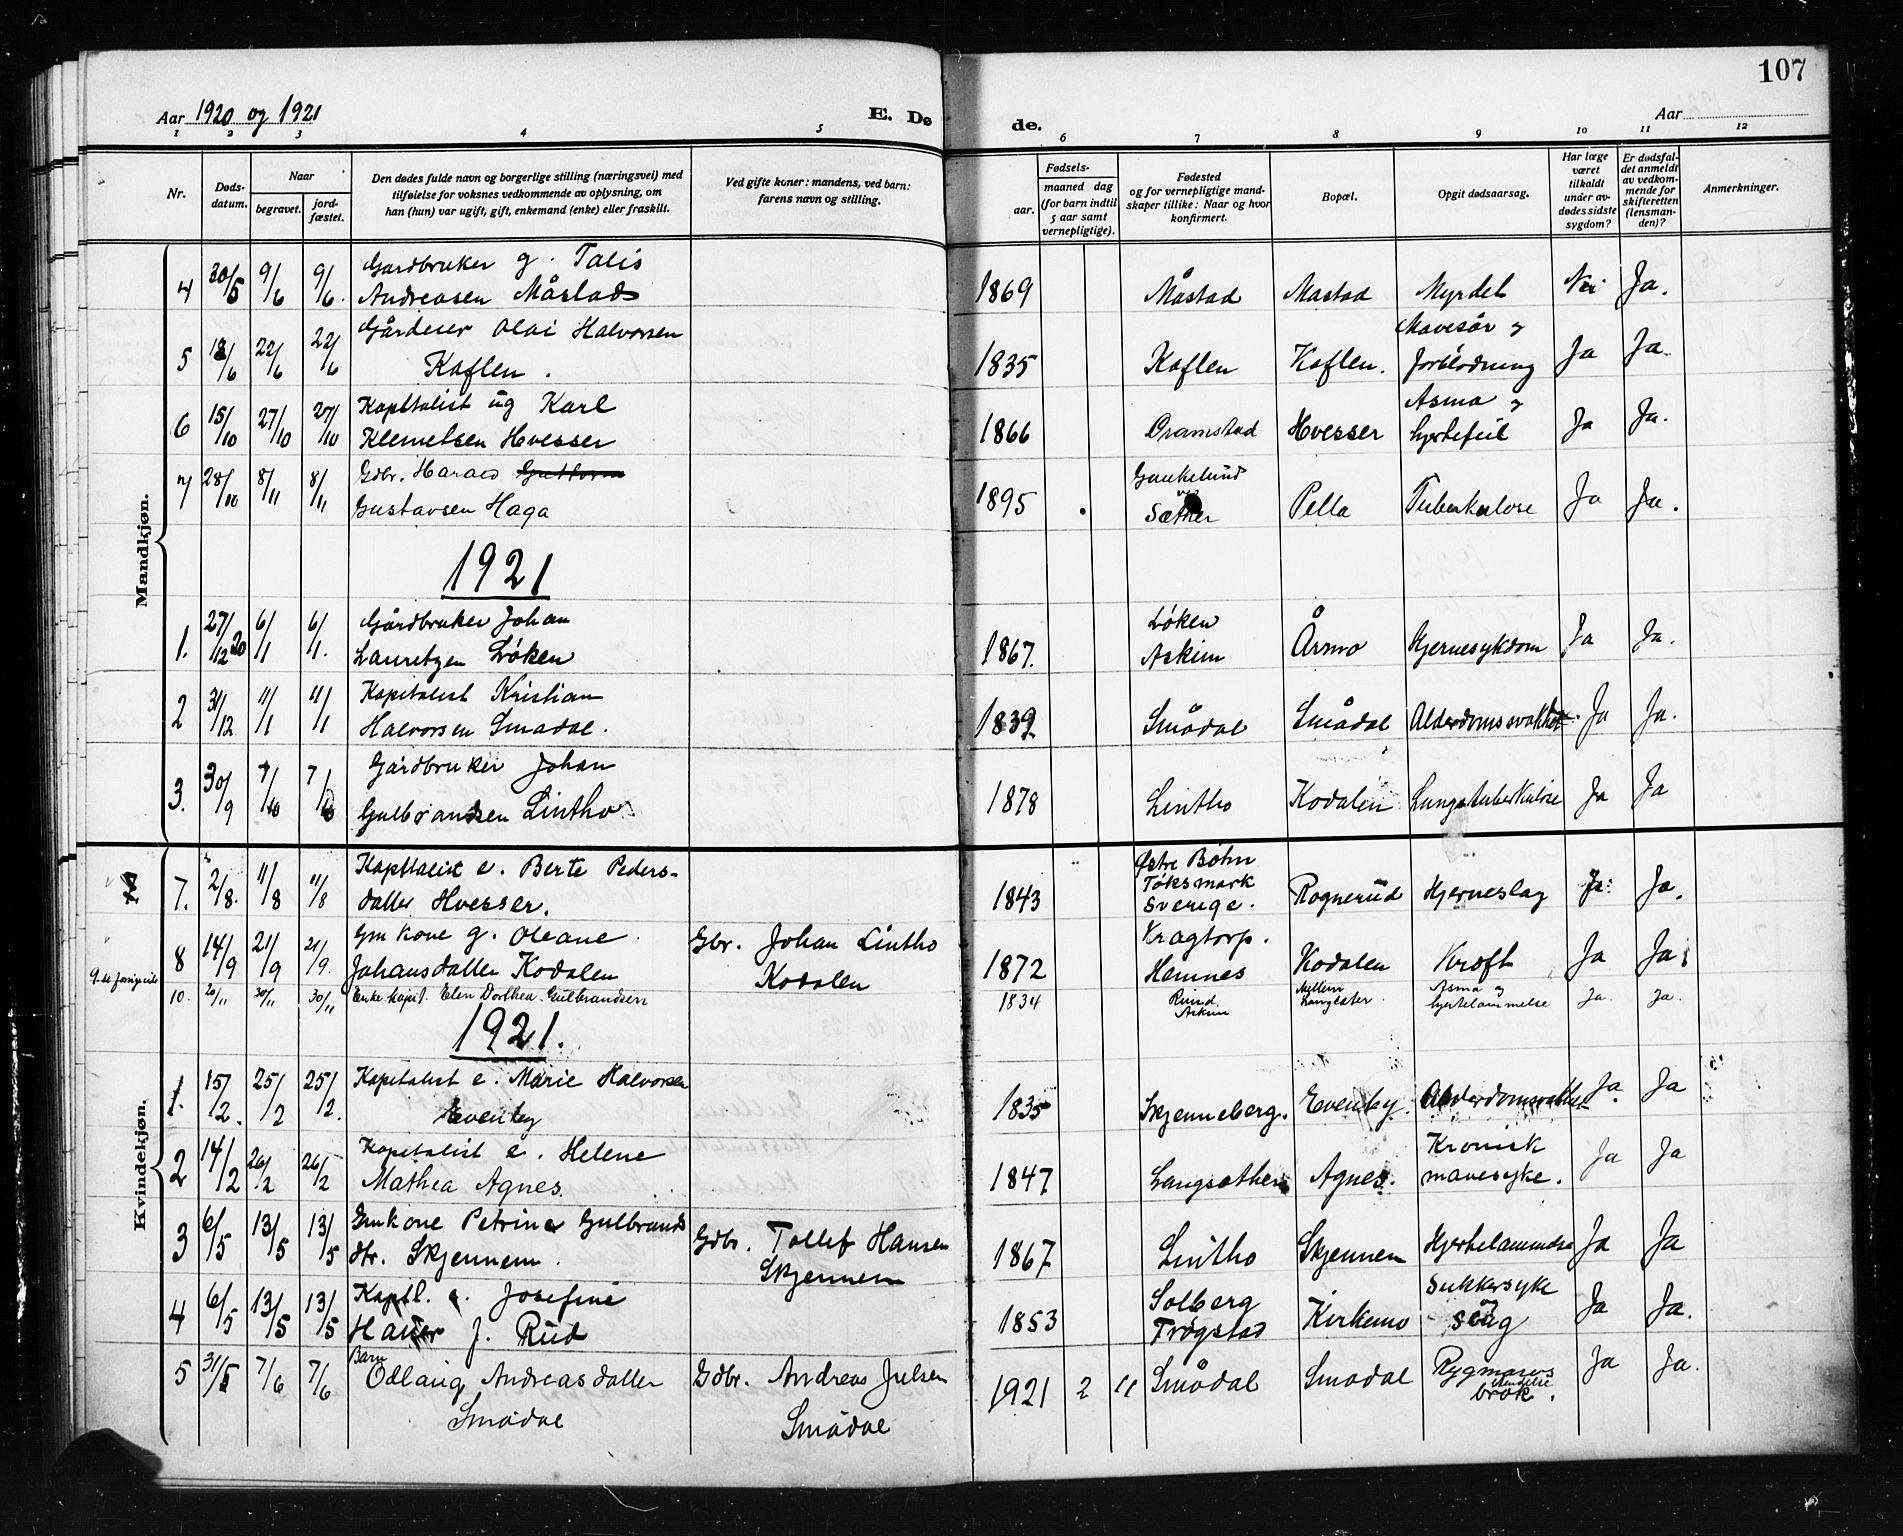 107
Aar 1920 og 1921 E. Dø de. Aar
1 2 3 4 5 6 7 8 9 10 11 12
Nr. Døds-datum. Naar begravet. jord-fæstet. Den dødes fulde navn og borgerlige stilling (næringsvei) med tilføielse for voksnes vedkommende av oplysning, om han (hun) var ugift, gift, enkemand (enke) eller fraskilt. Ved gifte koner: mandens, ved barn: farens navn og stilling. Fødsels- aar. maaned dag (for barn indtil 5 aar samt vernepligtige). Fødested og for vernepligtige mand-skaper tillike: Naar og hvor konfirmert. Bopæl. Opgit dødsaarsag. Har læge været tilkaldt under av-dødes sidste sygdom? Er dødsfal-det anmeldt av vedkom-mende for skifteretten (lensman-den)? Anmerkninger.
Mandkjøn.
4 30/5 9/6 9/6. Gardbruker g. Talis
Andreasen Måstad 1869 Måstad Mastad Myrdet Nei Ja.
5 18/6 22/6 22/6 Gårdeier Olai Halvorsen
Kaflen. 1835 Kaflen Kaflen. Mavesår og
forblødning Ja Ja.
6 15/10 27/10 27/10 Kapitalist ug Karl
Klemetsen Hvesser 1866 Dramstad Hvesser Asma og
hjertefeil Ja Ja.
7 28/10 8/11 8/11 Gdbr. Harald Guttorm
Gustavsen Haga 1895 Gaukelund
ved
Sæther Pella Tuberkulose Ja Ja.
1921
1. 27/12 20 6/1 6/1. Gårdbruker Johan
Lauretzen Løken 1867. Løken
Askim Årmo Hjernesykdom Ja Ja.
2 31/12 11/1 11/1 Kapitalist Kristian
Halvorsen Smadal. 1839 Smådal Smådal Alderdomssvakhet. Ja Ja.
3. 30/9 7/10 7/10 Gårdbruker Johan
Gulbrandsen Lintho 1878 Lintho Kodalen Lungetuberkulose Ja Ja
Kvindekjøn.
7. 2/8. 11/8 11/8 Kapitalist e. Berte Peders-
datter Hvesser. 1843 Østre Bøhn
Töksmark
Sverige. Rognerud Hjerneslag Ja. Ja.
8 14/9 21/9 21/9. Gm kone g. Oleane
Johansdatter Kodalen Gbr. Johan Lintho
Kodalen 1872 Kragtorp.
Hemnes Kodalen Kræft Ja Ja.
9. se forrige side
10. 20/11 30/11 30/11 Enke kapit. Elen Dorthea Gulbrandsen 1834 Rund
Askim Mellem
Langsæter Asma og
hjertelammelse Ja. Ja.
1921.
1. 15/2. 25/2 25/2. Kapitalist e. Marie Halvorsen
Evenby 1835 Skjenneberg. Evenby. Alderdomsvakhet Ja. Ja
2 14/2 26/2 26/2 Kapitalist e. Helene
Mathea Agnes. 1847 Langsæther Agnes. Kronisk
mavesyke. Ja Ja
3 6/5 13/5 13/5 Gmkone Petrine Gulbrands
dtr. Skjennem. Gdbr. Tollef Hansen
Skjennem 1867 Lintho Skjennem Hjertelammelse Ja Ja
4 6/5 13/5 13/5 Kaptl. e. Josefine
f. Rud 1853 Solberg
Trøgstad Kirkemo Sukkersyke
og Ja Ja.
5 31/5 7/6 7/6 Barn
Odlaug Andreasdatter
Smådal Gdbr. Andreas Julsen
Smådal 1921 2 11 Smådal Smadal Rygmarvs
brok. Ja Ja.